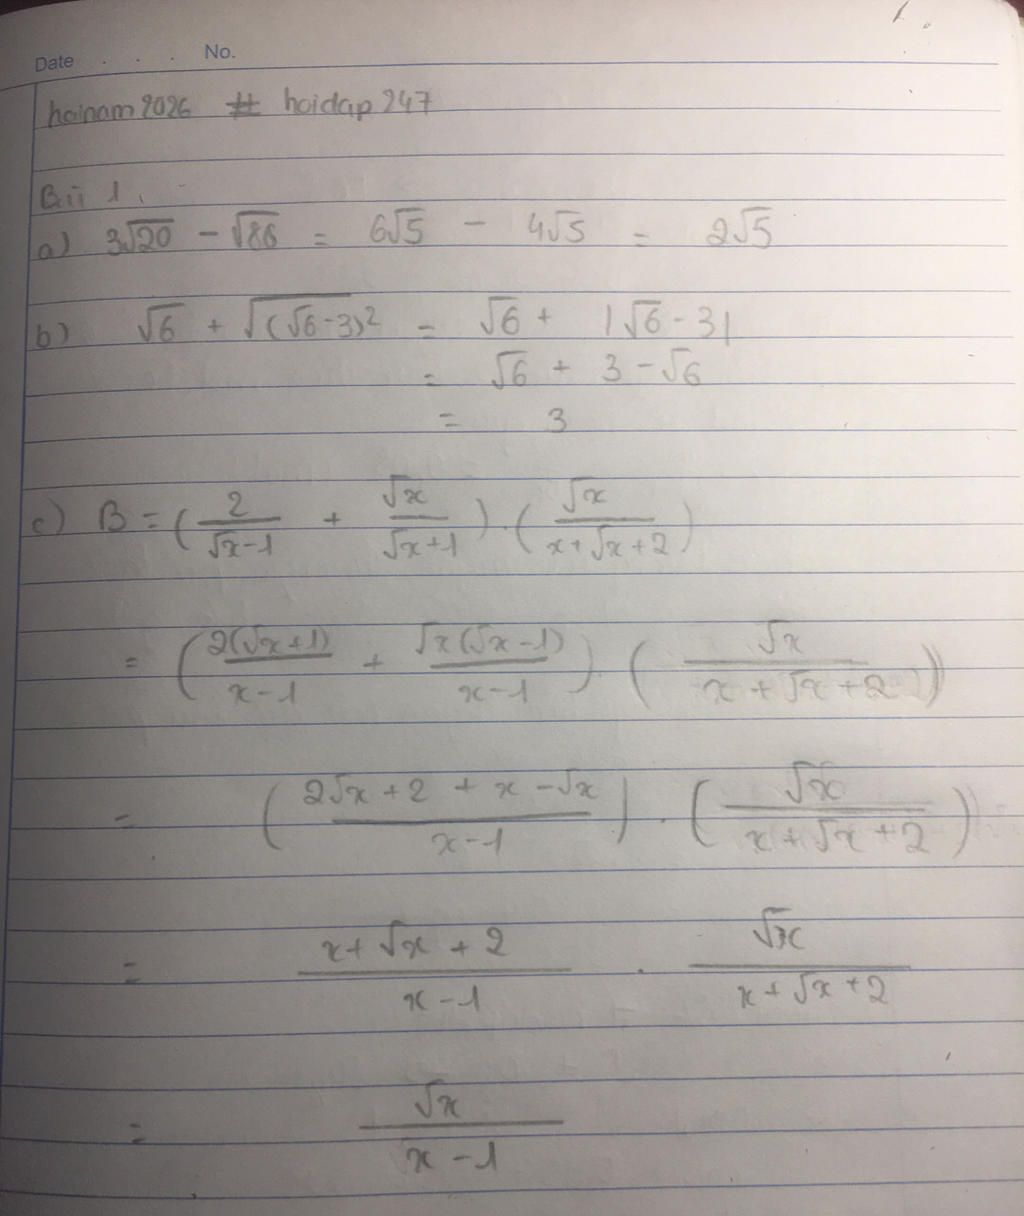 Date . . . . No.
hainam2026 # hoidap247
Bài 1.
a) 3√20 - √86 = 6√5 - 4√5 = 2√5
b) √6 + √(√6-3)² = √6 + |√6-3|
= √6 + 3-√6
= 3
c) B = (2/(√x-1) + √x/(√x+1)) . (√x/(x+√x+2))
= (2(√x+1)/(x-1) + √x(√x-1)/(x-1)) . (√x/(x+√x+2))
= ((2√x+2+x-√x)/(x-1)) . (√x/(x+√x+2))
= (x+√x+2)/(x-1) . √x/(x+√x+2)
= √x/(x-1)